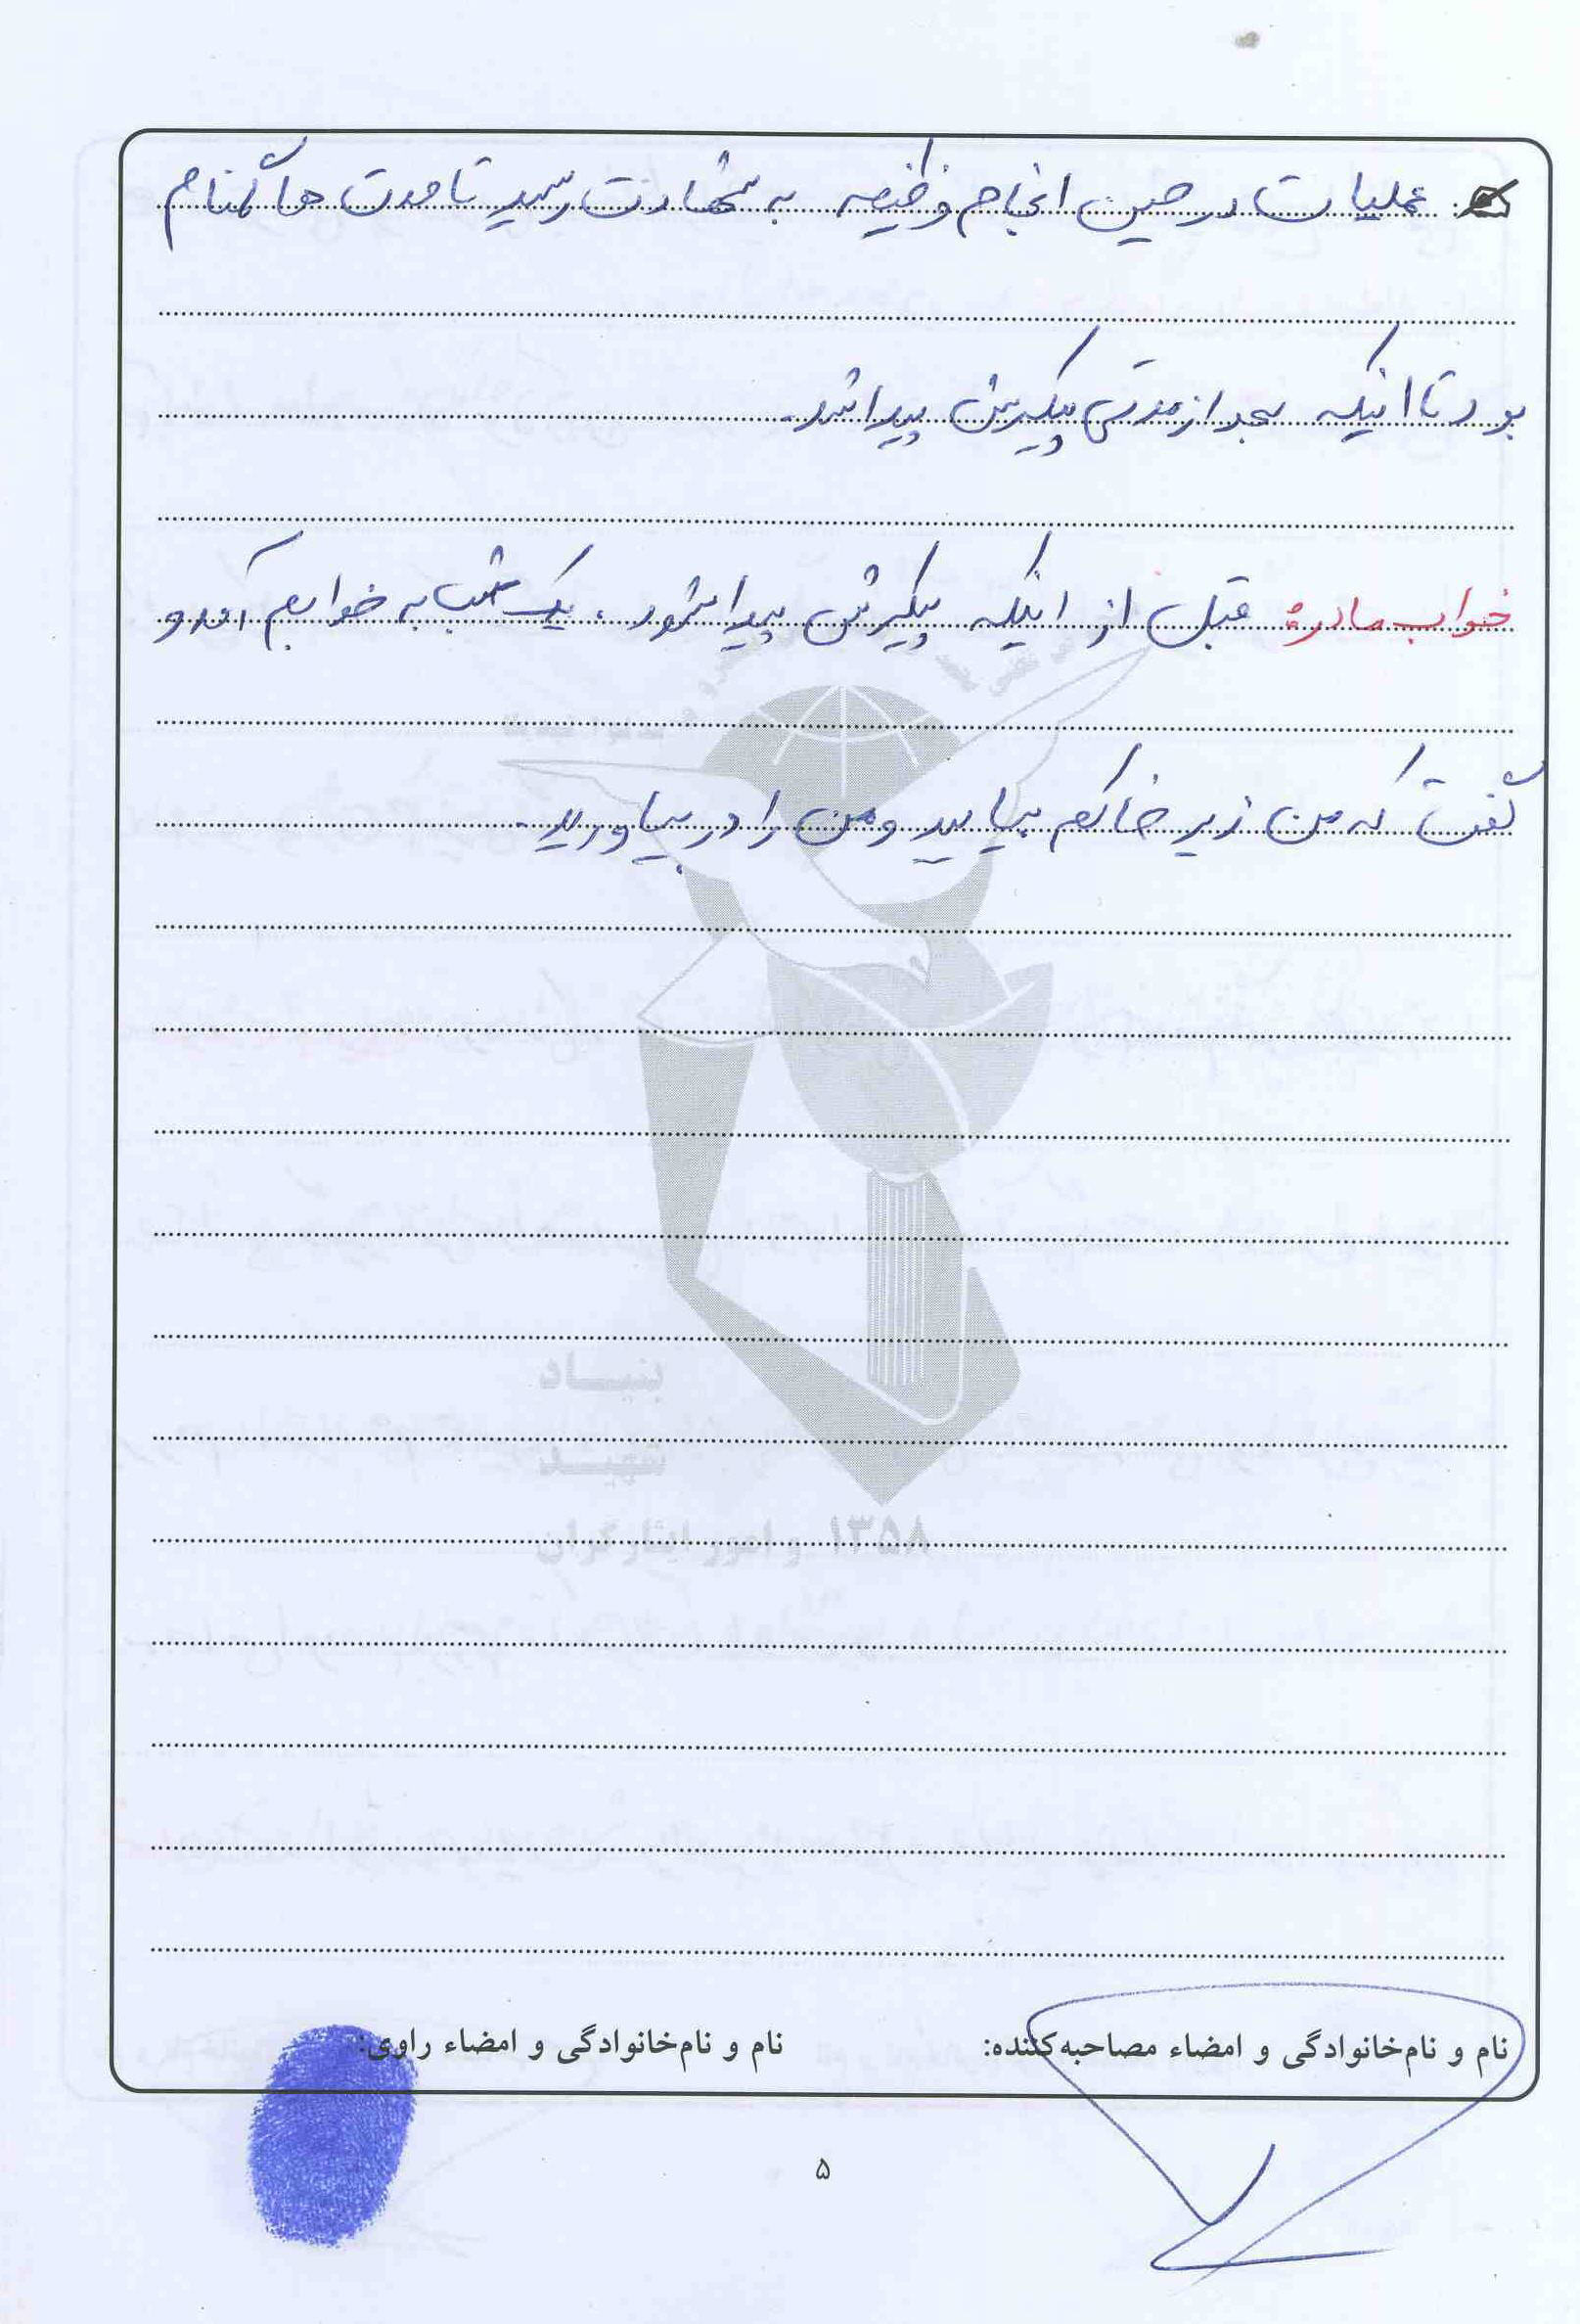 عملیات در حین انجام وظیفه به شهادت رسید تا مدت ها گمنام
بود تا اینکه بعد از مدتی پیکرش پیدا شد.
خواب مادر: قبل از اینکه پیکرش پیدا شود، یک شب به خوابم آمد و
گفت که من زیر خاکم بیایید و من را در بیاورید.
بنیاد
شهید
و امور ایثارگران ۱۳۵۸
نام و نام‌خانوادگی و امضاء مصاحبه‌کننده:
نام و نام‌خانوادگی و امضاء راوی:
۵